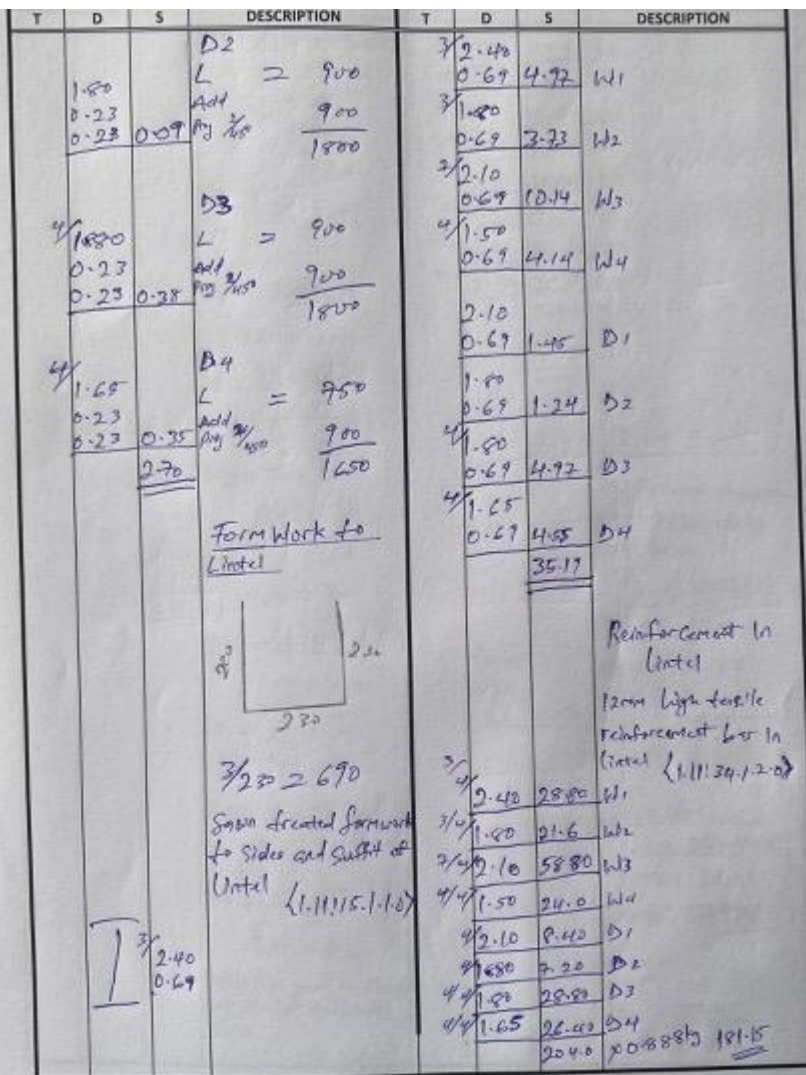 T D S DESCRIPTION
D2
L = 900
1.80
0.23
0.23 0.09
Add 900
1800
D3
4/ 1.80
0.23
0.23 0.38
L = 900
Add 900
1800
D4
4/ 1.65
0.23
0.23 0.35
L = 750
Add 900
1650
2.70
Form Work to
Lintel
230
230
3/230 = 690
Sawn treated formwork
to sides and suffit of
Lintel
3/ 2.40
0.69
T D S DESCRIPTION
3/ 2.40
0.69 4.97 W1
3/ 1.80
0.69 3.73 W2
7/ 2.10
0.69 10.14 W3
4/ 1.50
0.69 4.14 W4
2.10
0.69 1.45 D1
1.80
0.69 1.24 D2
4/ 1.80
0.69 4.97 D3
4/ 1.65
0.69 4.55 D4
35.19
Reinforcement In
Lintel
12mm high tensile
reinforcement bar In
Lintel
3/4/ 2.40 28.80 W1
3/4/ 1.80 21.6 W2
7/4/ 2.10 58.80 W3
4/4/ 1.50 24.0 W4
4/ 2.10 8.40 D1
4/ 1.80 7.20 D2
4/4/ 1.80 28.80 D3
4/4/ 1.65 26.40 D4
204.0 x0.888kg 181.15